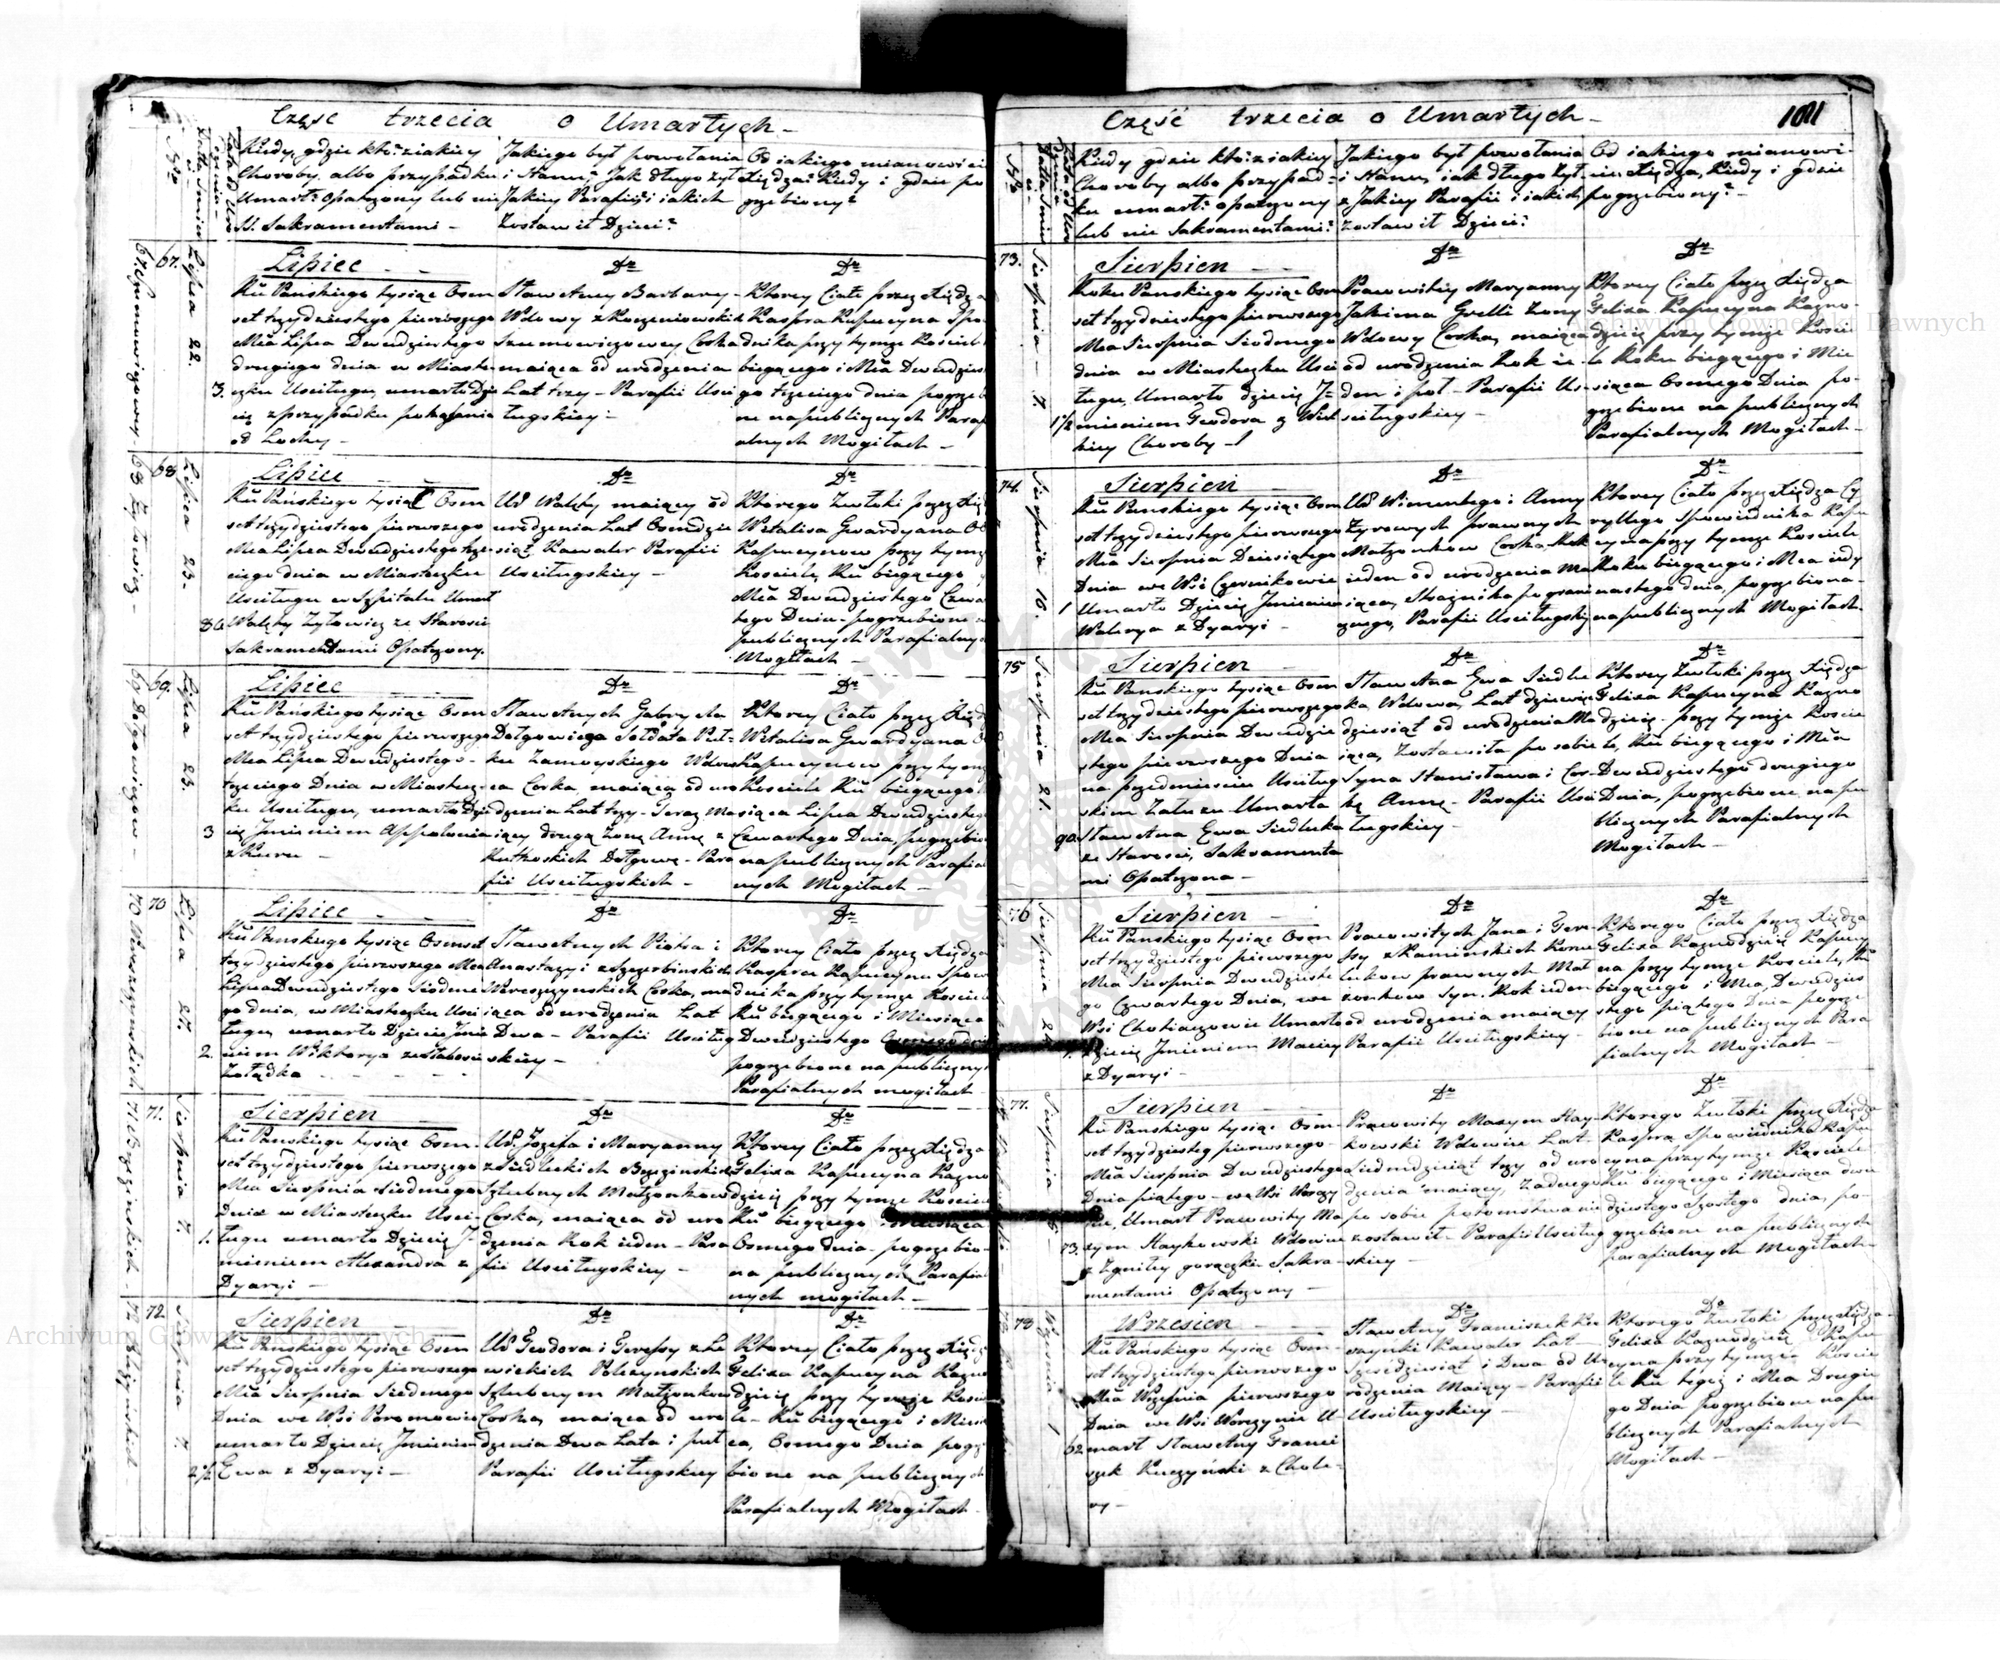 Częsc trzecia o Umarłych -
Kiedy, gdzie kto: z iakiey
Choroby, albo przypadku
Umarł: Opatrzony lub nie
SS. Sakramentami -
Jakiego był powołania
i Stanu? Jak długo żył
Jakiey Parafii? i iakich
Zostawił Dzieci?
Od iakiego mianowicie
Xiędza? Kiedy i gdzie po
grzebiony?
67.
Lipca 22.
3.
Lipiec
Rku Pańskiego tysiąc Osm
set trzydziestego pierwszego
Mca Lipca Dwudziestego
drugiego dnia w Miaste
czku Uściługu, umarło Dzie
cię z przypadku
od Lochy -
Dto
Sławetney Barbary -
Wdowy z Korzeniowskich
Szumowiczowey, Corka
maiąca od urodzenia
Lat trzy - Parafii Uści
ługskiey -
Dto
Ktorey Ciało przez Xiędza
Kaspra Kapucyna Spo
dnika przy tymże Kościele
biegącego i Mca Dwudzies
go trzeciego dnia pogrzeb
ne na publicznych Paraf
alnych Mogiłach -
68
Lipca 23.
80.
Lipiec
Rku Pańskiego tysiąc Osm
set trzydziestego pierwszego
Mca Lipca Dwudziestego trze
ciego dnia w Miasteczku
Uściługu w Szpitalu Umarł
Walęty Zytowicz ze Starości
Sakramentami Opatrzony.
Dto
Ur Walęty maiący od
urodzenia Lat Osmdzie
siąt Kawaler Parafii
Uściługskiey -
Dto
Ktorego Zwłoki przez Xię
Witalisa Gwardyana
Kapucynow przy tymż
Kościele Rku biegącego
Mca Dwudziestego Czwa
tego Dnia pogrzebione
publicznych Parafialny
Mogiłach -
69.
Lipca 23.
3
Lipiec
Rku Pańskiego tysiąc Osm
set trzydziestego pierwszego
Mca Lipca Dwudziestego -
trzeciego Dnia w Miastecz
ku Uściługu, umarło Dzie
cię Jmieniem Appolonia
z Kuru -
Dto
Sławetnych Gabryela
Dołgowicza Sołdata Puł-
ku Zamoyskiego Wdow
ca Corka, maiąca od uro
dzenia Lat trzy - teraz Ma
iący drugą Żonę Annę z
Rutkoskich Dołgową - Para
fii Uściługskich -
Dto
Ktorey Ciało przez Xięd
Witalisa Gwardyana
Kapucynow przy tym
Kościele Rku biegącego
siąca Lipca Dwudziestego
Czwartego Dnia, pogrzebio
na publicznych Parafia
nych Mogiłach -
70
Lipca 27.
2.
Lipiec
Rku Pańskiego tysiąc Osmset
trzydziestego pierwszego Mca
Lipca Dwudziestego Siodme
go dnia, w Miasteczku Uści
ługu, umarło Dziecię Jmie
niem Wiktorya ze słabości
Zołądka
Dto
Sławetnych Piotra i
Anastazyi z Szczerbińskich
Wereszczyńskich Corka, ma
iąca od urodzenia Lat
Dwa - Parafii Uściług
skiey -
Dto
Ktorey Ciało przez Xiędza
Kaspra Kapucyna Spow
dnika przy tymże Kościele
Rku biegącego i Miesiąca
Dwudziestego Osmego dnia
pogrzebione na publiczny
Parafialnych mogiłach
71.
Sierpnia 7.
1.
Sierpien
Rku Pańskiego tysiąc Osm
set trzydziestego pierwszego
Mca Sierpnia Siodmego
Dnia w Miasteczku Uści-
ługu umarło Dziecię J-
mieniem Alexandra z
Dyaryi -
Dto
Ur. Jozefa i Maryanny
z Siedleckich Brzezińskich
Szlubnych Małżonkow
Corka, maiąca od uro
dzenia Rok ieden - Para
fii Uściługskiey -
Dto
Ktorey Ciało przez Xiędza
Felixa Kapucyna Kazno
dzieię przy tymże Kościele
Rku biegącego i Miesiąca
Osmego dnia pogrzebio-
na publicznych Parafia
nych mogiłach -
72.
Sierpnia 7.
2 1/2
Sierpien
Rku Pańskiego tysiąc Osm
set trzydziestego pierwszego
Mca Sierpnia Siedmego
Dnia we Wsi Poromowie
umarło Dziecię Jmieniem
Ewa z Dyaryi -
Dto
Ur Teodora i Teressy z Le
wickich Poleszynskich
Szlubnym Małżonkow
Corka, maiąca od uro
dzenia Dwa Lata i puł
Parafii Uściługskiey
Dto
Ktorey Ciało przez Xiędz
Felixa Kapucyna Kazno
dzieię przy tymże Kości
le - Rku biegącego i Mies
ca, Osmego Dnia pogrz
bione na publicznych
Parafialnych Mogiłach -
Część trzecia o Umarłych -
101
Kiedy gdzie kto: z iakiey
Choroby albo przypad-
ku umarł: opatrzony
lub nie Sakramentami?
Jakiego był powołania
i Stanu, iak długo żył
z Jakiey Parafii i iakich
zostawił Dzieci?
Od iakiego mianowi-
cie Xiędza, Kiedy i gdzie
pogrzebiony? -
73.
Sierpnia 7.
1 1/2
Sierpien
Roku Pańskiego tysiąc Osm
set trzydziestego pierwszego
Mca Sierpnia Siodmego
dnia w Miasteczku Uści
ługu, Umarło dziecię J-
mieniem Teodora z Wiel
kiey Choroby -
Dto
Pracowitey Maryanny
Jakima Grelli Żony
Wdowy Corka, maiąca
od urodzenia Rok ie-
den i poł - Parafii Uś-
ciługskiey -
Dto
Ktorey Ciało przez Xiędza
Felixa Kapucyna Kazno-
dzieię przy tymże Kości
le Roku biegącego i Mie
siąca Osmego Dnia po-
grzebione na publicznych
Parafialnych Mogiłach -
74.
Sierpnia 10.
1
Sierpien
Rku Pańskiego tysiąc Osm
set trzydziestego pierwszego
Mca Sierpnia Dziesiątego
Dnia we Wsi Czernikowie
Umarło Dziecię Jmieniem
Walerya z Dyaryi -
Dto
Ur Wincentego i Anny
Zyrowych prawnych
Małżonkow Corka Rok
ieden od urodzenia Ma
iąca, Strażnika po grani
cznego, Parafii Uściługskiey
Dto
Ktorey Ciało przez Xiędza Cy
ryllego Spowiednika Kapu
cyna przy tymże Kościele
Roku biegącego i Mca iedy
nastego dnia, pogrzebiona -
na publicznych Mogiłach -
75
Sierpnia 21.
90.
Sierpien
Rku Pańskiego tysiąc Osm
set trzydziestego pierwszego
Mca Sierpnia Dwudzie
stego pierwszego Dnia
na przedmieściu Uściług
skim Zaluzu Umarła
Sławetna Ewa Siedlecka
ze Starości, Sakramenta
mi Opatrzona -
Dto
Sławetna Ewa Siedlec
ka Wdowa, Lat dziewię
dziesiąt od urodzenia Ma
iąca, Zostawiła po sobie
Syna Stanisława i Cor-
kę Annę - Parafii Uści
ługskiey -
Dto
Ktorey Zwłoki przez Xiędza
Felixa Kapucyna Kazno
dzieię - przy tymże Koście
le, Rku biegącego i Mca
Dwudziestego drugiego
Dnia, pogrzebione na pu
blicznych Parafialnych
Mogiłach -
76
Sierpnia 24
Sierpien
Rku Pańskiego tysiąc Osm
set trzydziestego pierwszego
Mca Sierpnia Dwudzieste
go Czwartego Dnia, we
Wsi Chotiaczowie Umarło
Dziecię Jmieniem Maciey
z Dyaryi -
Dto
Pracowitych Jana i Tere-
ssy z Kaminskich
prawnych Mał
żonkow Syn. Rok ieden
od urodzenia maiący
Parafii Uściługskiey -
Dto
Ktorego Ciało przez Xiędza
Felixa Kaznodzieię Kapucy
na przy tymże Kościele, Rku
biegącego i Mca, Dwudzies
stego piątego Dnia pogrze
bione na publicznych Para
fialnych Mogiłach -
77.
Sierpnia
73.
Sierpien
Rku Pańskiego tysiąc Osm-
set trzydziesteg pierwszego -
Mca Sierpnia Dwudziestego
Dnia piątego - we Wsi Worczy
nie, Umarł Pracowity Ma
xym Haykowski Wdowiec
z Zgniłey gorączki Sakra-
mentami Opatrzony -
Dto
Pracowity Maxym Hay-
kowski Wdowiec Lat -
Siedmdziesiąt trzy od uro
dzenia maiący, Żadnego
po sobie potomstwa nie
zostawił - Parafii Uściług
skiey -
Dto
Ktorego Zwłoki przez Xiędza
Kaspra Spowiednika Kapu
cyna przy tymże Kościele
Rku biegącego i Miesiąca dwu
dziestego Szostego dnia, po-
grzebione na publicznych
parafialnych Mogiłach -
78
Września 1
62
Wrzesien
Rku Pańskiego tysiąc Osm-
set trzydziestego pierwszego
Mca Września pierwszego
Dnia we Wsi Worczynie U-
marł Sławetny Franci
szek Kuczyński z Chole-
ry -
Dto
Sławetny Franciszek Ku
czynski Kawaler Lat -
Sześćdziesiąt i Dwa od U
rodzenia Maiący - Parafii
Uściługskiey -
Dto
Ktorego Zwłoki przez Xiędza
Felixa Kaznodzieię Kapu
cyna przy tymże Kościele
Rku tegoż i Mca Drugie
go Dnia pogrzebione na pu
blicznych Parafialnych
Mogiłach -
Archiwum Główne Akt Dawnych
Archiwum Główne Akt Dawnych